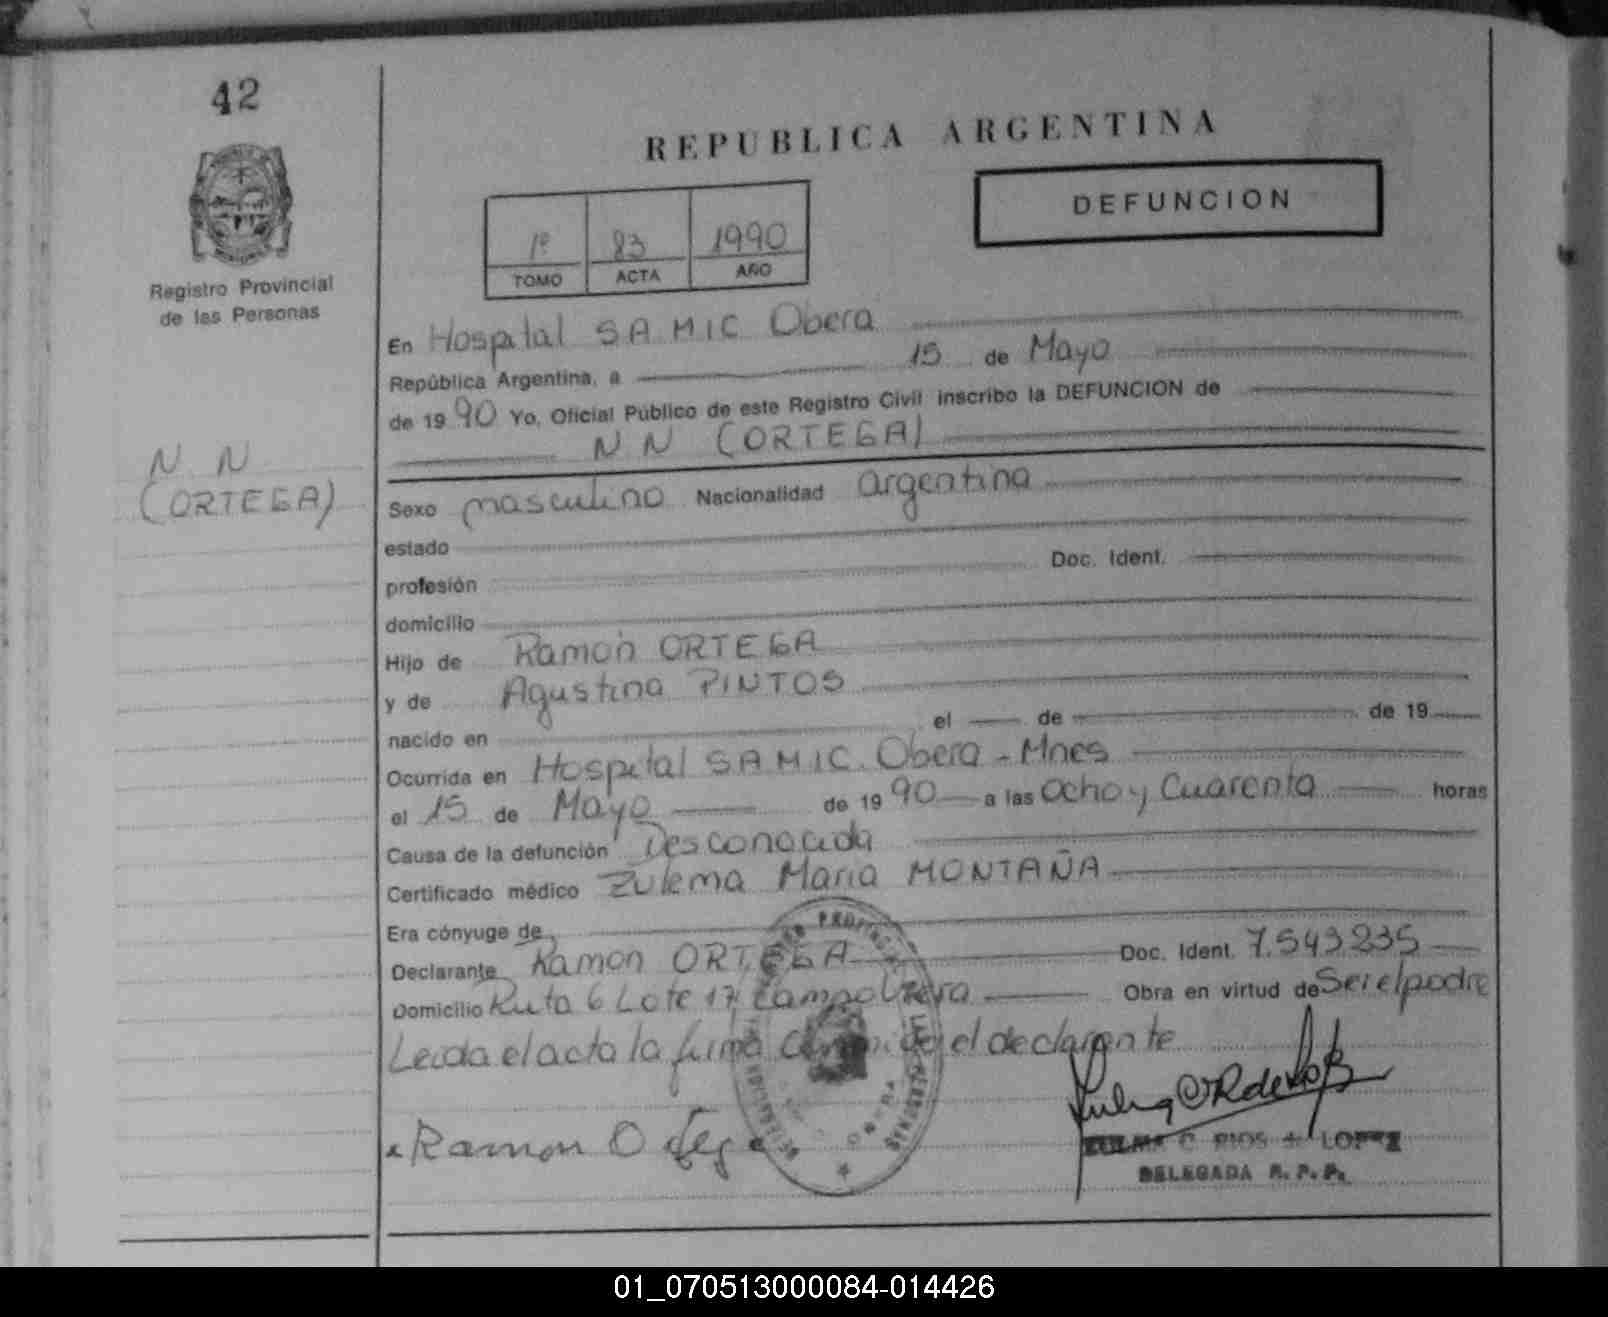 42
REPUBLICA ARGENTINA
DEFUNCION
1º 83 1990
TOMO ACTA AÑO
Registro Provincial
de las Personas
En Hospital SAMIC Obera
República Argentina, a 15 de Mayo
de 1990 Yo, Oficial Público de este Registro Civil inscribo la DEFUNCION de
N N (ORTEGA)
N N
(ORTEGA)
Sexo masculino Nacionalidad argentina
estado
profesión Doc. Ident.
domicilio
Hijo de Ramón ORTEGA
y de Agustina PINTOS
nacido en el de de 19
Ocurrida en Hospital SAMIC. Obera - Mnes
el 15 de Mayo de 1990 a las Ocho y Cuarenta horas
Causa de la defunción Desconocida
Certificado médico Zulema Maria MONTAÑA
Era cónyuge de
Declarante Ramon ORTEGA Doc. Ident. 7.543.235
Domicilio Ruta 6 Lote 17, Campo Viera Obra en virtud de Ser el padre
Leida el acta la firma el declarante
Ramon Ortega
ZULMA C. RIOS de LOPEZ
DELEGADA R. P. P.
01_070513000084-014426